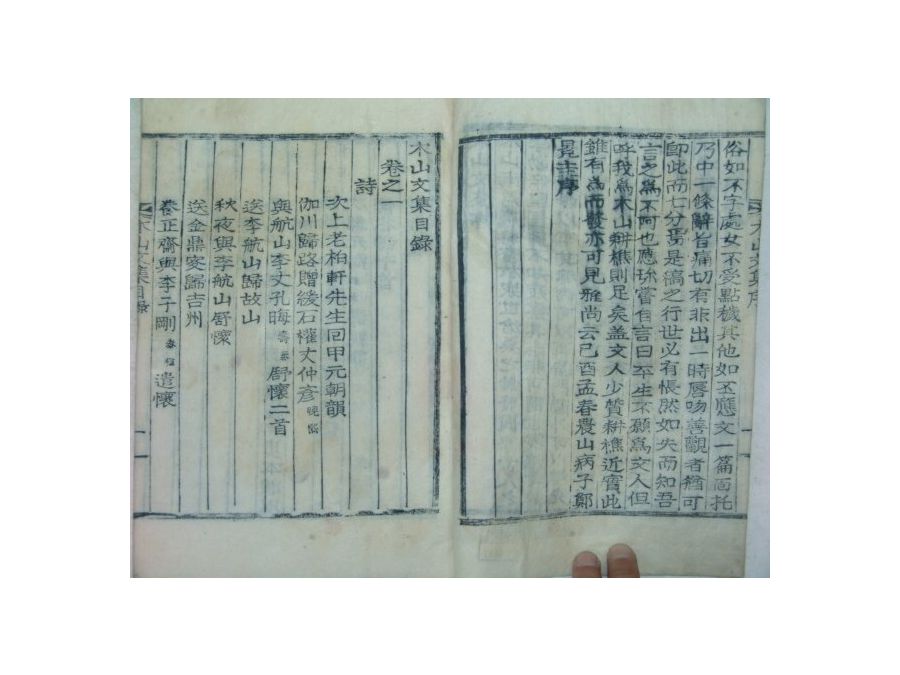 俗如不字處女不受點穢其他如丕應文一篇面托
乃中一條辭旨痛切有非出一時唇吻善觀者猶可
師此而七分焉是編之行世必有悵然如失而知吾
言之爲不阿也應珫嘗自言曰平生不願爲文人但
呼我爲木山耕樵則足矣盖文人少贊耕樵近實此
雖有爲而發亦可見雅尚云己酉孟春農山病子鄭
冕圭序
木山文集序
木山文集目錄
卷之一
詩
次上老柏軒先生回甲元朝韻
伽川歸路贈綾石權丈仲彥
與航山李丈孔晦舒懷二首
送李航山歸故山
秋夜與李航山舒懷
送金鼎 歸吉州
正齋與李子剛 遣懷
木山文集目錄
一